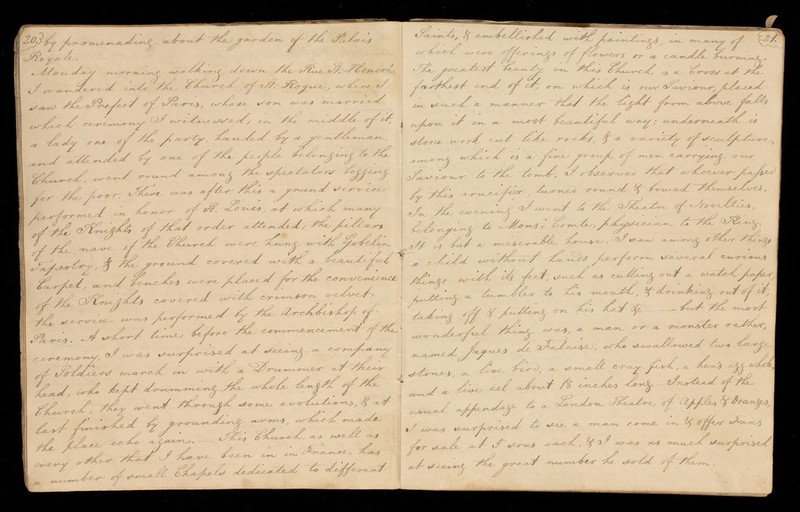 20.
by promenading about the garden of the Palais
Royale.
Monday morning walking down the Rue St. Honoré,
I wandered into the Church of St. Rogue, where I
saw the Prefect of Paris, whose son was married
which ceremony I witnessed, in the middle of it,
a lady one of the party, handed by a gentleman,
and attended by one of the people belonging to the
Church, went round among the spectators begging
for the poor. There was after this a grand service
performed in honor of St. Louis, at which many
of the Knights of that order attended; the pillars
of the nave of the Church were hung with Gobelin
Tapestry, & the ground covered with a beautiful
Carpet, and benches were placed for the convenience
of the Knights covered with crimson velvet;
the service was performed by the Archbishop of
Paris. A short time before the commencement of the
ceremony, I was surprised at seeing a company
of Soldiers march in with a Drummer at their
head, who kept drumming the whole length of the
Church; they went through some evolutions, & at
last finished by grounding arms, which made
the place echo again. — This Church as well as
every other that I have been in in France, has
a number of small Chapels dedicated to different
21.
Saints, & embellished with paintings, in many of
which were offerings of flowers or a candle burning.
The greatest beauty in this Church is a Cross at the
farthest end of it, on which is our Saviour, placed
in such a manner that the light from above falls
upon it in a most beautiful way; underneath is
stone work cut like rocks, & a variety of sculpture,
among which is a fine group of men carrying our
Saviour to the tomb. I observed that whoever passed
by this crucifix, turned round & bowed themselves.
In the evening I went to the Theatre of Novelties,
belonging to Monsr. Comte, physician to the King,
It is but a miserable house. I saw among other things
a child without hands perform several curious
things with its feet, such as cutting out a watch paper,
putting a tumbler to his mouth, & drinking out of it,
taking off & putting on his hat &c — but the most
wonderful thing was, a man or a monster rather,
named Jaques de Falaise, who swallowed two large
stones, a live bird, a small cray fish, a hen's egg whole,
and a live eel about 18 inches long. Instead of the
usual appendage to a London Theatre of Apples & Oranges,
I was surprised to see a man come in & offer Fans
for sale at 5 sous each, & I was as much surprised
at seeing the great number he sold of them.